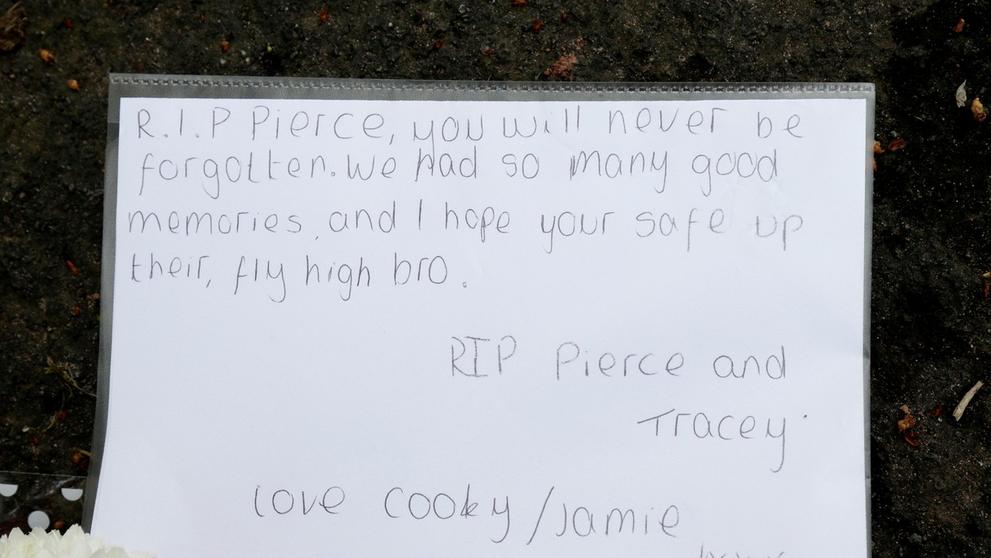 R.I.P Pierce, you will never be
forgotten. We had so many good
memories, and I hope your safe up
their, fly high bro.
RIP Pierce and
Tracey.
love cooky/Jamie